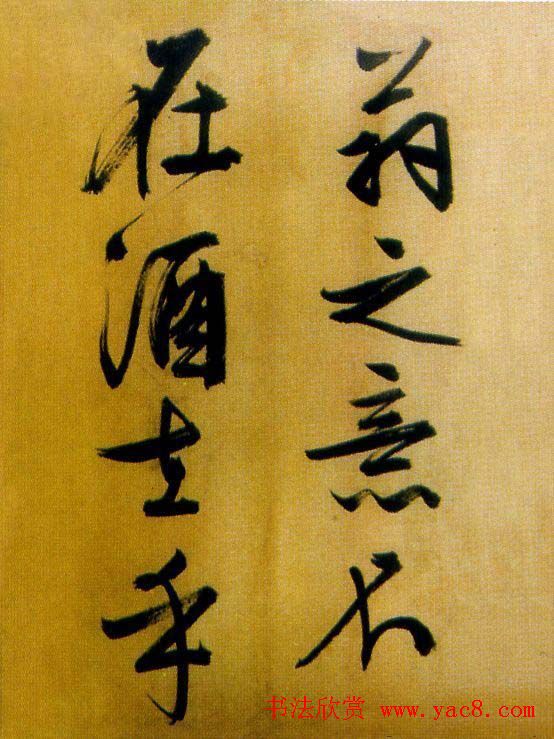 翁之意不
在酒在乎
书法欣赏 www.yac8.com